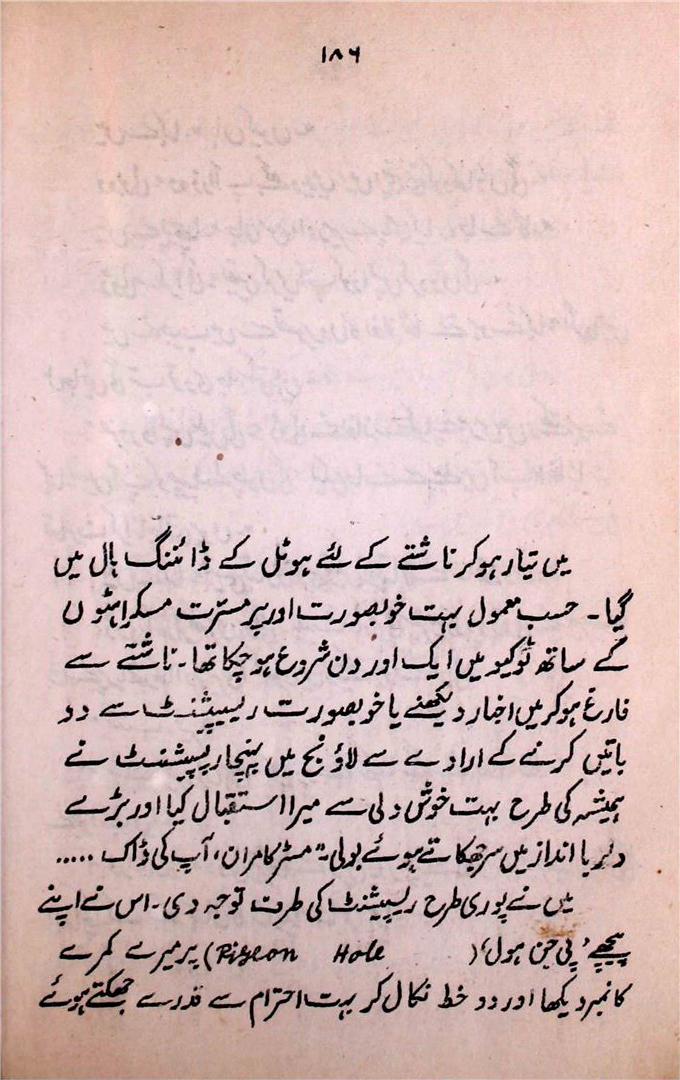 ۱۸۶
میں تیار ہوکر ناشتے کے لئے ہوٹل کے ڈائننگ ہال میں
گیا۔ حسب معمول بہت خوبصورت اور پر مسرّت مسکراہٹوں
کے ساتھ ٹوکیو میں ایک اور دن شروع ہو چکا تھا۔ ناشتے سے
فارغ ہوکر میں اخبار دیکھنے یا خوبصورت ریسیپشنٹ سے دو
باتیں کرنے کے ارادے سے لاؤنج میں پہنچا ریسپشنٹ نے
ہمیشہ کی طرح بہت خوش دلی سے میرا استقبال کیا اور بڑے
دلربا انداز میں سر جھکاتے ہوئے بولی۔ "مسٹر کامران، آپ کی ڈاک .....
میں نے پوری طرح ریسپشنٹ کی طرف توجہ دی۔ اس نے اپنے
پیچھے 'پی جن ہول' (Pigeon Hole) پر میرے کمرے
کا نمبر دیکھا اور دو خط نکال کر بہت احترام سے قدرے جھکتے ہوئے